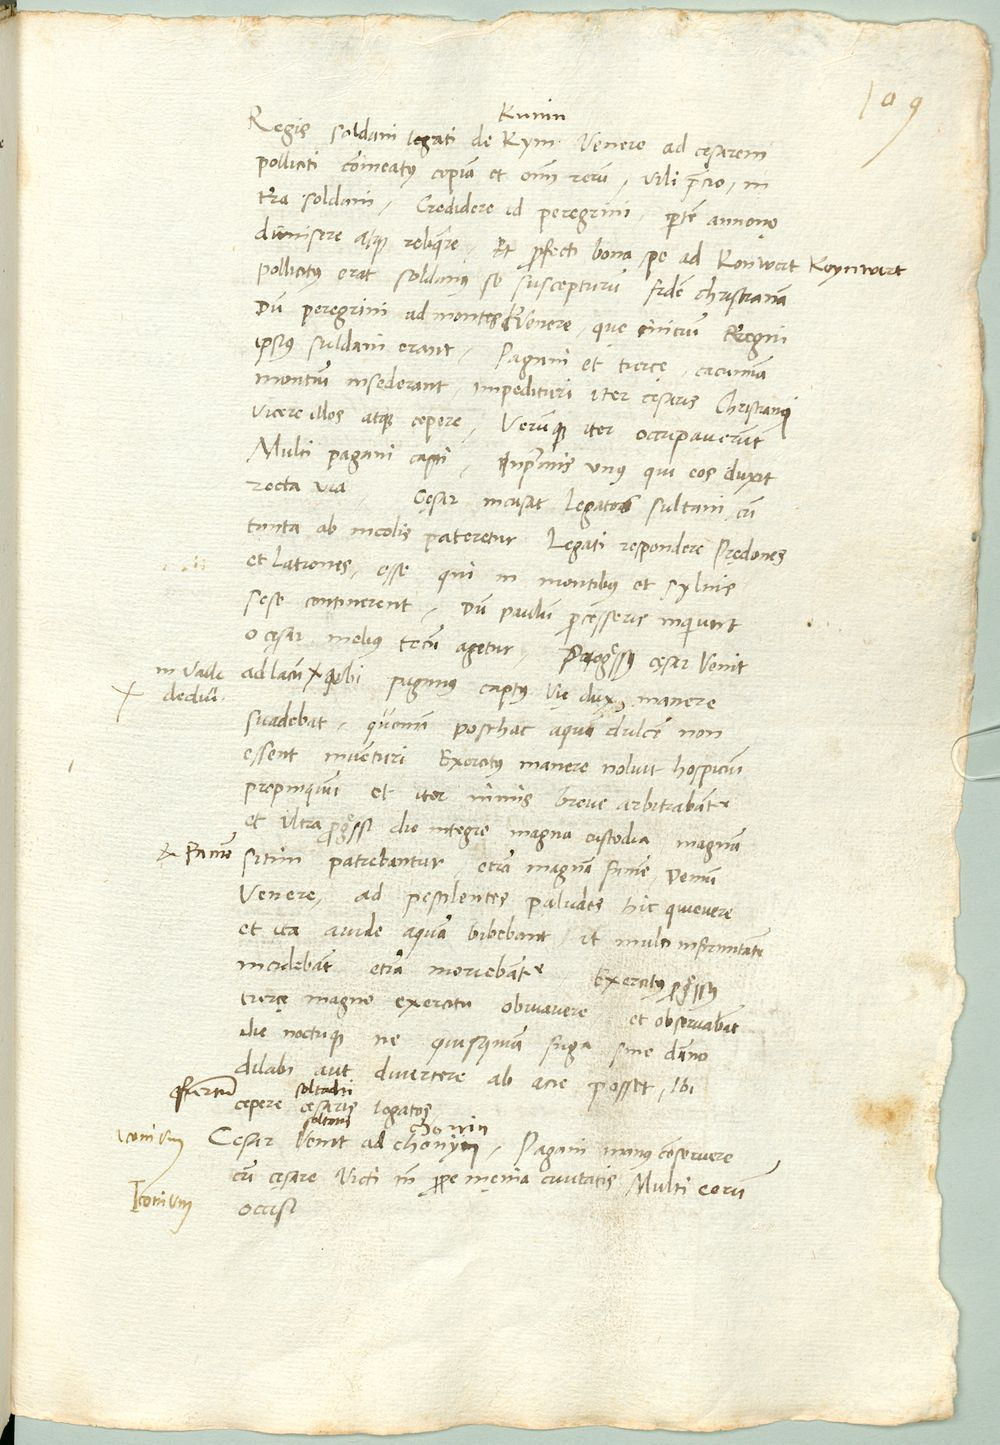 109
Kunin
Regis soldani legati de Kym Venere ad cesarem
polliciti comeatus copiã et oim rerũ, vili p̃cio, in
tr̃a soldani, Credidere id peregrini, p̃tẽ annone
dimisere atque reliq̃re, Et p̃fecti bona spe ad Konwert Koynwart
pollicitus erat soldanus se suscepturũ fidẽ christianã
Dũ peregrini ad montes Venere, que initiũ Regni
ipsius suldani erant, Pagani et turce, cacumina
montiũ insederant, impedituri iter cesaris Christiani
Vicere illos atque cepere, Verũque iter occupaverũt
Multi pagani capti, Inprimis unus qui eos duxit
recta via, Cesar incusat Legatos sultani cũ
tanta ab incolis pateretur Legati respondere Predones
et Latrones, esse qui in montibus et sylvis
sese continerent, Dũ paulũ p̃cesseris inquiunt
o cesar melius tecũ agetur, Progressus cesar Venit
in valle
dedũ
ad lacũ + ubi paganus captus vie dux, manere
suadebat, quoniã posthac aquã dulcẽ non
essent inventuri Exercitus manere noluit hospiciũ
propinquũ et iter nimis breve arbitrabãtr
et ultra p̃gressi die integro magna custodia, magnã
& famẽ
sitim patiebantur, etiã magnã famẽ, Demũ
Venere, ad pestilentes paludes hic quievere
et ita avide aquã bibebant, ut multi infirmitatẽ
incidebãt etiã moriebãtr, Exercitus p̃gressus
turce magno exercitu obviavere et observabãt
die noctuque ne quisquam fuga sine dãno
dilabi aut divertere ab acie posset, Ibi
soltadni
cepere cesaris legatos
soltanis
Conin
Iconium
Cesar Venit ad chonyn, Pagani manus cõservere
cũ cesare Victi in p̃pe menia civitatis Multi eorũ
Iconium
occisi